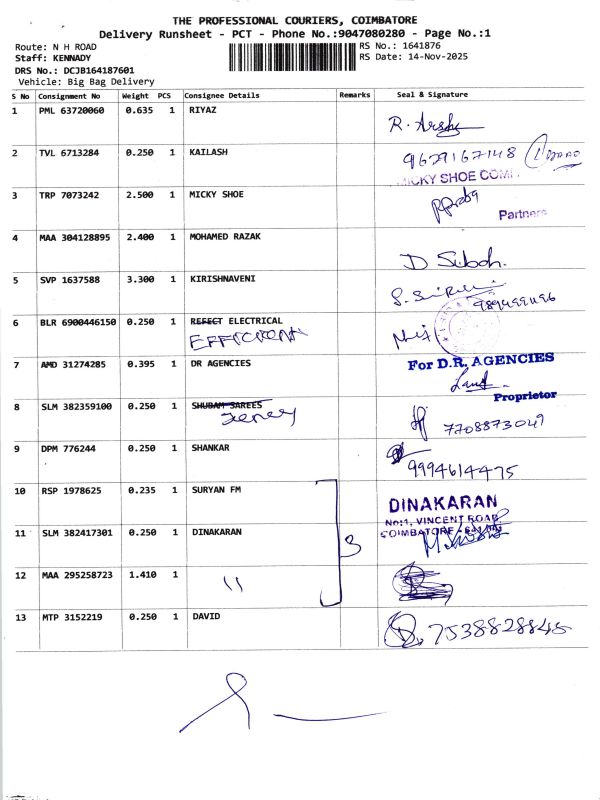 THE PROFESSIONAL COURIERS, COIMBATORE
Delivery Runsheet - PCT - Phone No.:9047080280 - Page No.:1
Route: N H ROAD
Staff: KENNADY
DRS No.: DCJB164187601
Vehicle: Big Bag Delivery
RS No.: 1641876
RS Date: 14-Nov-2025
S No Consignment No Weight PCS Consignee Details Remarks Seal & Signature
1 PML 63720060 0.635 1 RIYAZ
2 TVL 6713284 0.250 1 KAILASH 9629167148
MICKY SHOE COM
3 TRP 7073242 2.500 1 MICKY SHOE
Partners
4 MAA 304128895 2.400 1 MOHAMED RAZAK
5 SVP 1637588 3.300 1 KIRISHNAVENI
6 BLR 6900446150 0.250 1 REFECT ELECTRICAL
7 AMD 31274285 0.395 1 DR AGENCIES
For D.R. AGENCIES
Proprietor
8 SLM 382359100 0.250 1 SHUBAM SAREES
7708873049
9 DPM 776244 0.250 1 SHANKAR
9994614475
10 RSP 1978625 0.235 1 SURYAN FM
DINAKARAN
No:1, VINCENT ROAD,
COIMBATORE
11 SLM 382417301 0.250 1 DINAKARAN 3
12 MAA 295258723 1.410 1 "
13 MTP 3152219 0.250 1 DAVID 7538828845